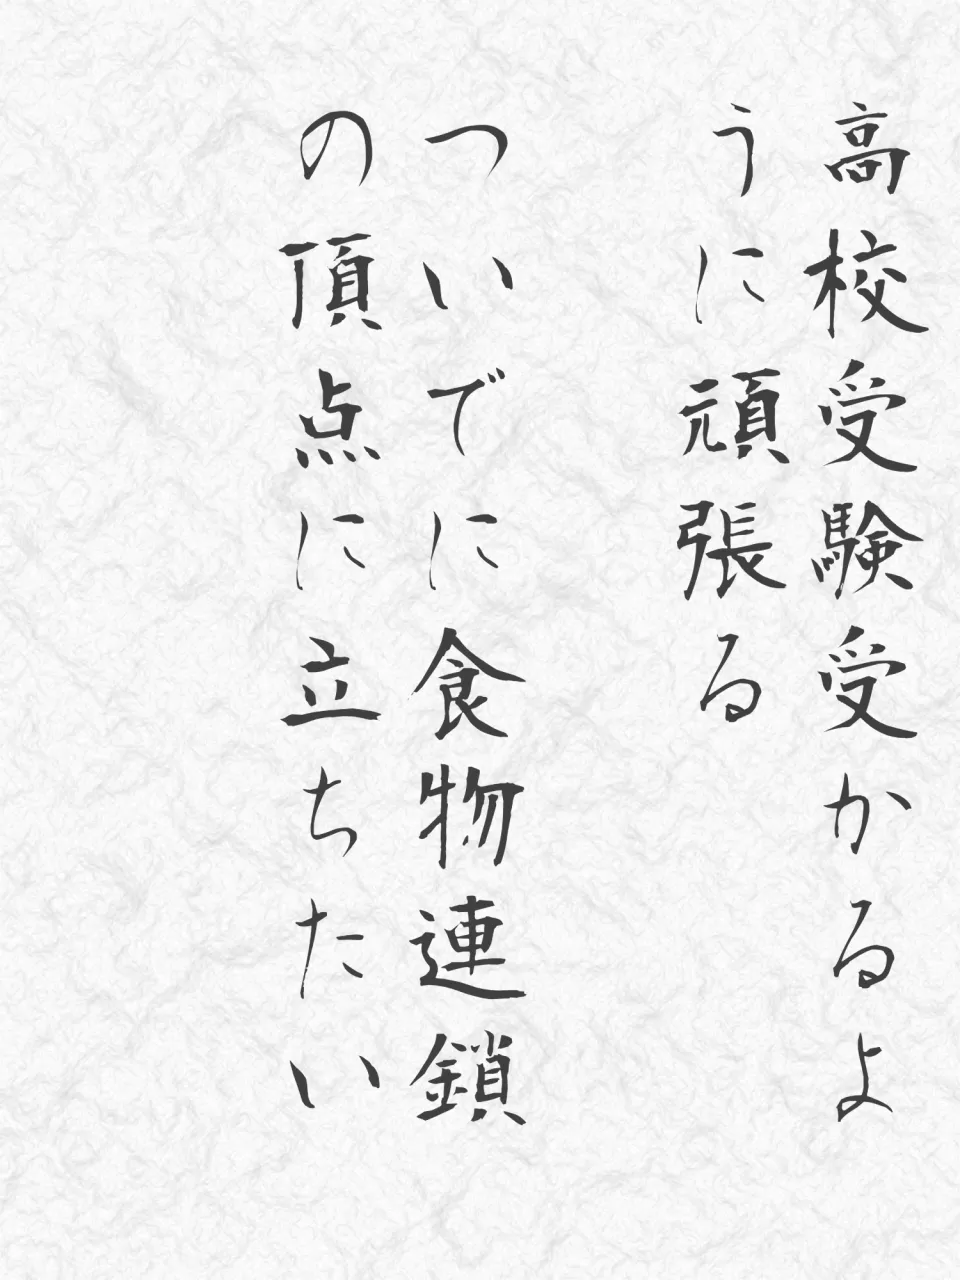 高校受験受かるよ
うに頑張る
ついでに食物連鎖
の頂点に立ちたい